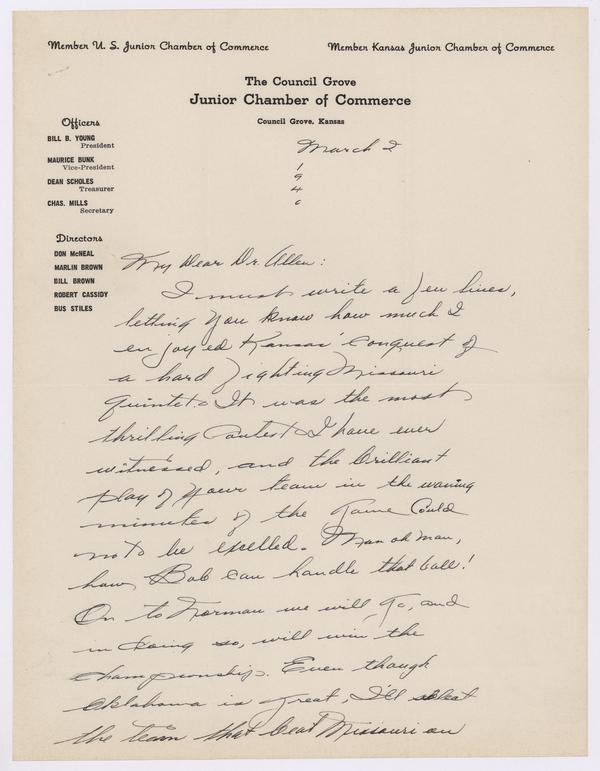 Member U. S. Junior Chamber of Commerce
Member Kansas Junior Chamber of Commerce
The Council Grove
Junior Chamber of Commerce
Council Grove, Kansas
Officers
BILL B. YOUNG
President
MAURICE BUNK
Vice-President
DEAN SCHOLES
Treasurer
CHAS. MILLS
Secretary
Directors
DON McNEAL
MARLIN BROWN
BILL BROWN
ROBERT CASSIDY
BUS STILES
March 2
1
9
4
0
My Dear Dr. Allen:
I must write a few lines,
letting you know how much I
enjoyed Kansas' conquest of
a hard fighting Missouri
quintet. It was the most
thrilling contest I have ever
witnessed, and the brilliant
play of your team in the waning
minutes of the game could
not be excelled. Man oh man,
how Bob can handle that ball!
On to Norman we will go, and
in doing so, will win the
championship. Even though
Oklahoma is great, I'll select
the team that beat Missouri on